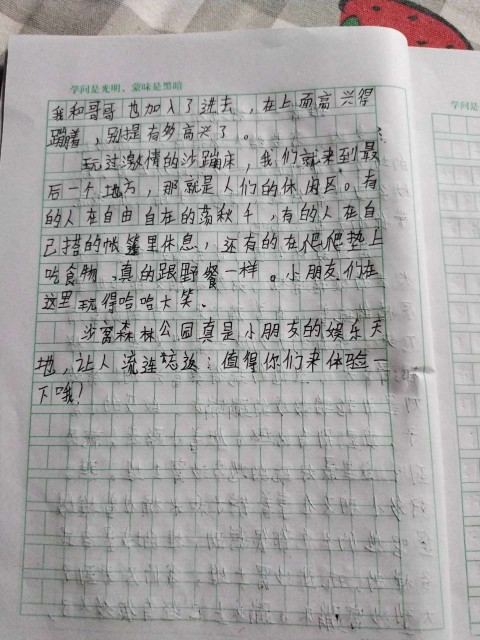 学问是光明，蒙昧是黑暗
我和哥哥也加入了进去，在上面高兴得
蹦着，别提有多高兴了。
玩过激情的沙蹦床，我们就来到最
后一个地方，那就是人们的休闲区。有
的人在自由自在的荡秋千，有的人在自
己搭的帐篷里休息，还有的在爬爬垫上
吃食物，真的跟野餐一样。小朋友们在
这里玩得哈哈大笑、
沙窝森林公园真是小朋友的娱乐天
地，让人流连忘返；值得你们来体验一
下哦！
学问是